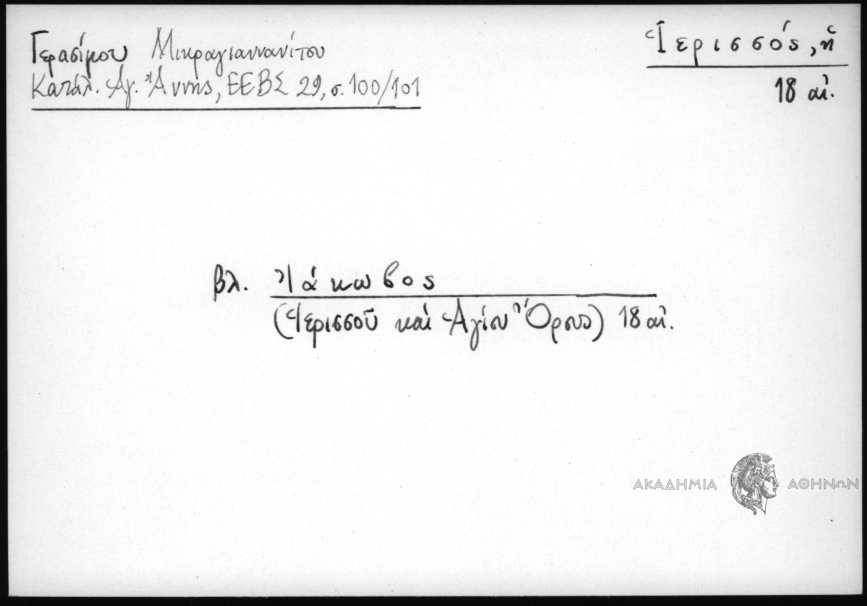 Γερασίμου Μικραγιαννανίτου
Κατάλ. Ἁγ. Ἄννης, ΕΕΒΣ 29, σ. 100/101
Ἱερισσός, ἡ
18 αἰ.
βλ. Ἰάκωβος
(Ἱερισσοῦ καὶ Ἁγίου Ὄρους) 18 αἰ.
ΑΚΑΔΗΜΙΑ ΑΘΗΝΩΝ